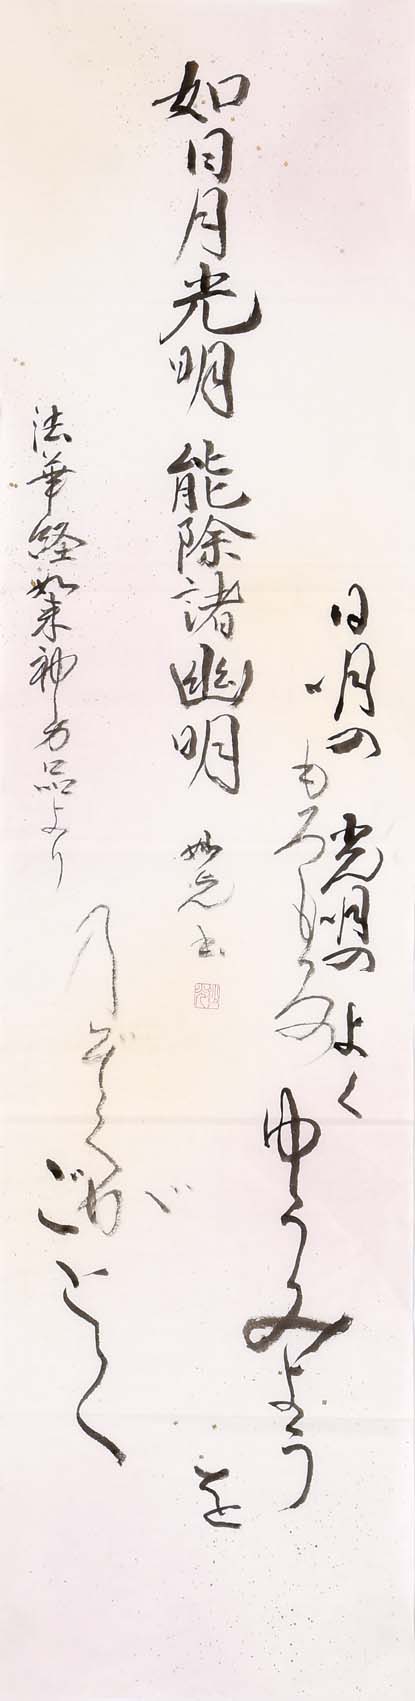 日明の 光明の よく
もろもろの
ゆうみよう
を
如日月光明 能除諸幽明
妙光書
のぞくが
ごとく
法華経如来神力品より